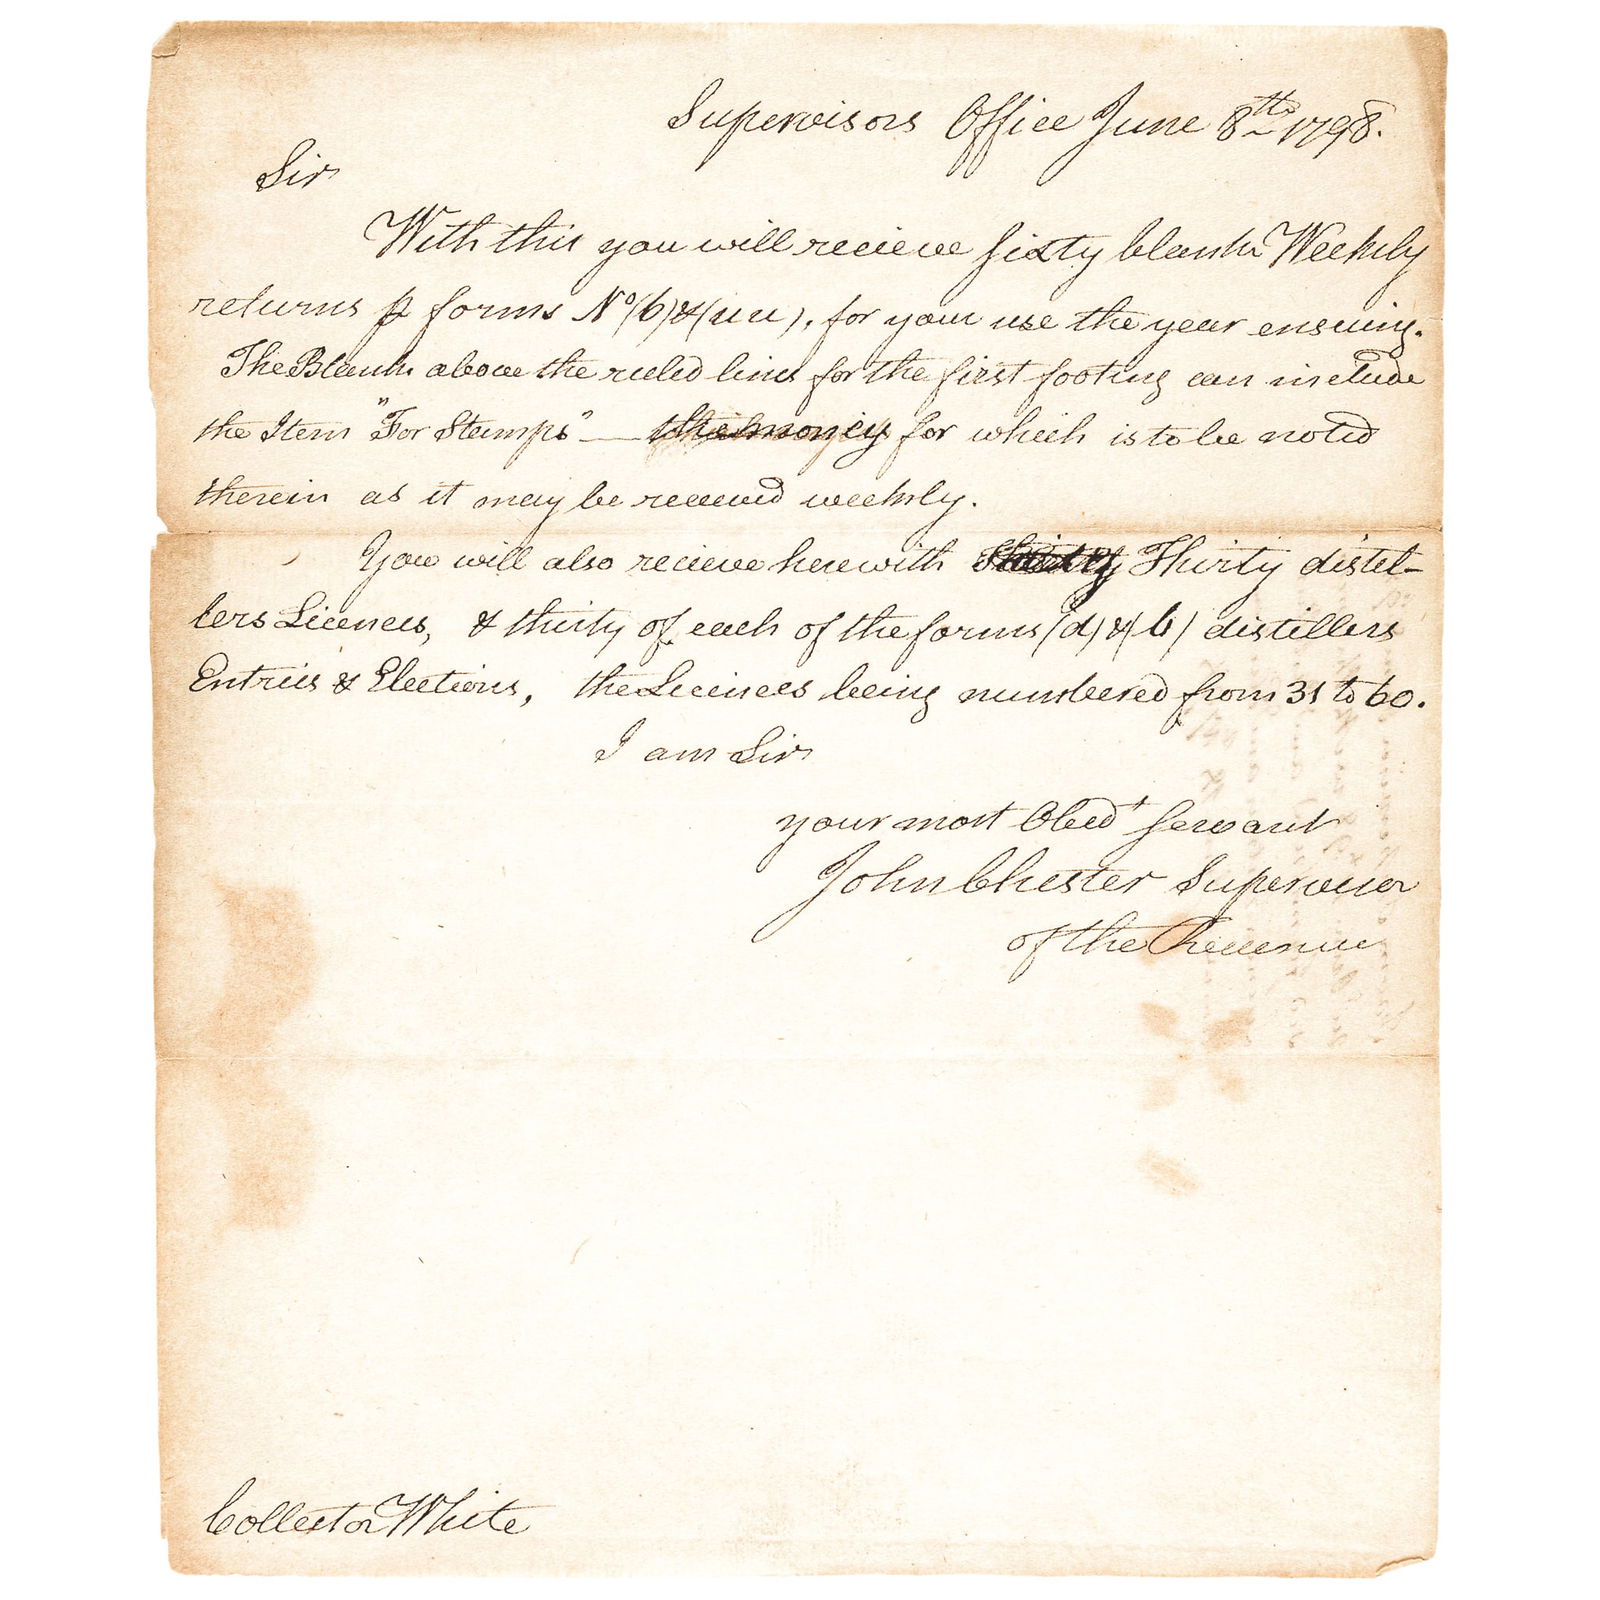 Supervisors Office June 8th 1798.
Sir
With this you will recieve sixty blank Weekly
returns p forms No (b) & (uu), for your use the year ensuing.
The Blank above the ruled lines for the first footing can include
the Item "For Stamps" — the money for which is to be noted
therein as it may be received weekly.
You will also recieve herewith Thirty Thirty distil-
lers Licences, & thirty of each of the forms (d) & (b) distillers
Entries & Elections, the Licences being numbered from 31 to 60.
I am Sir
your most Obedt servant
John Chester Supervisor
of the Revenue
Collector White